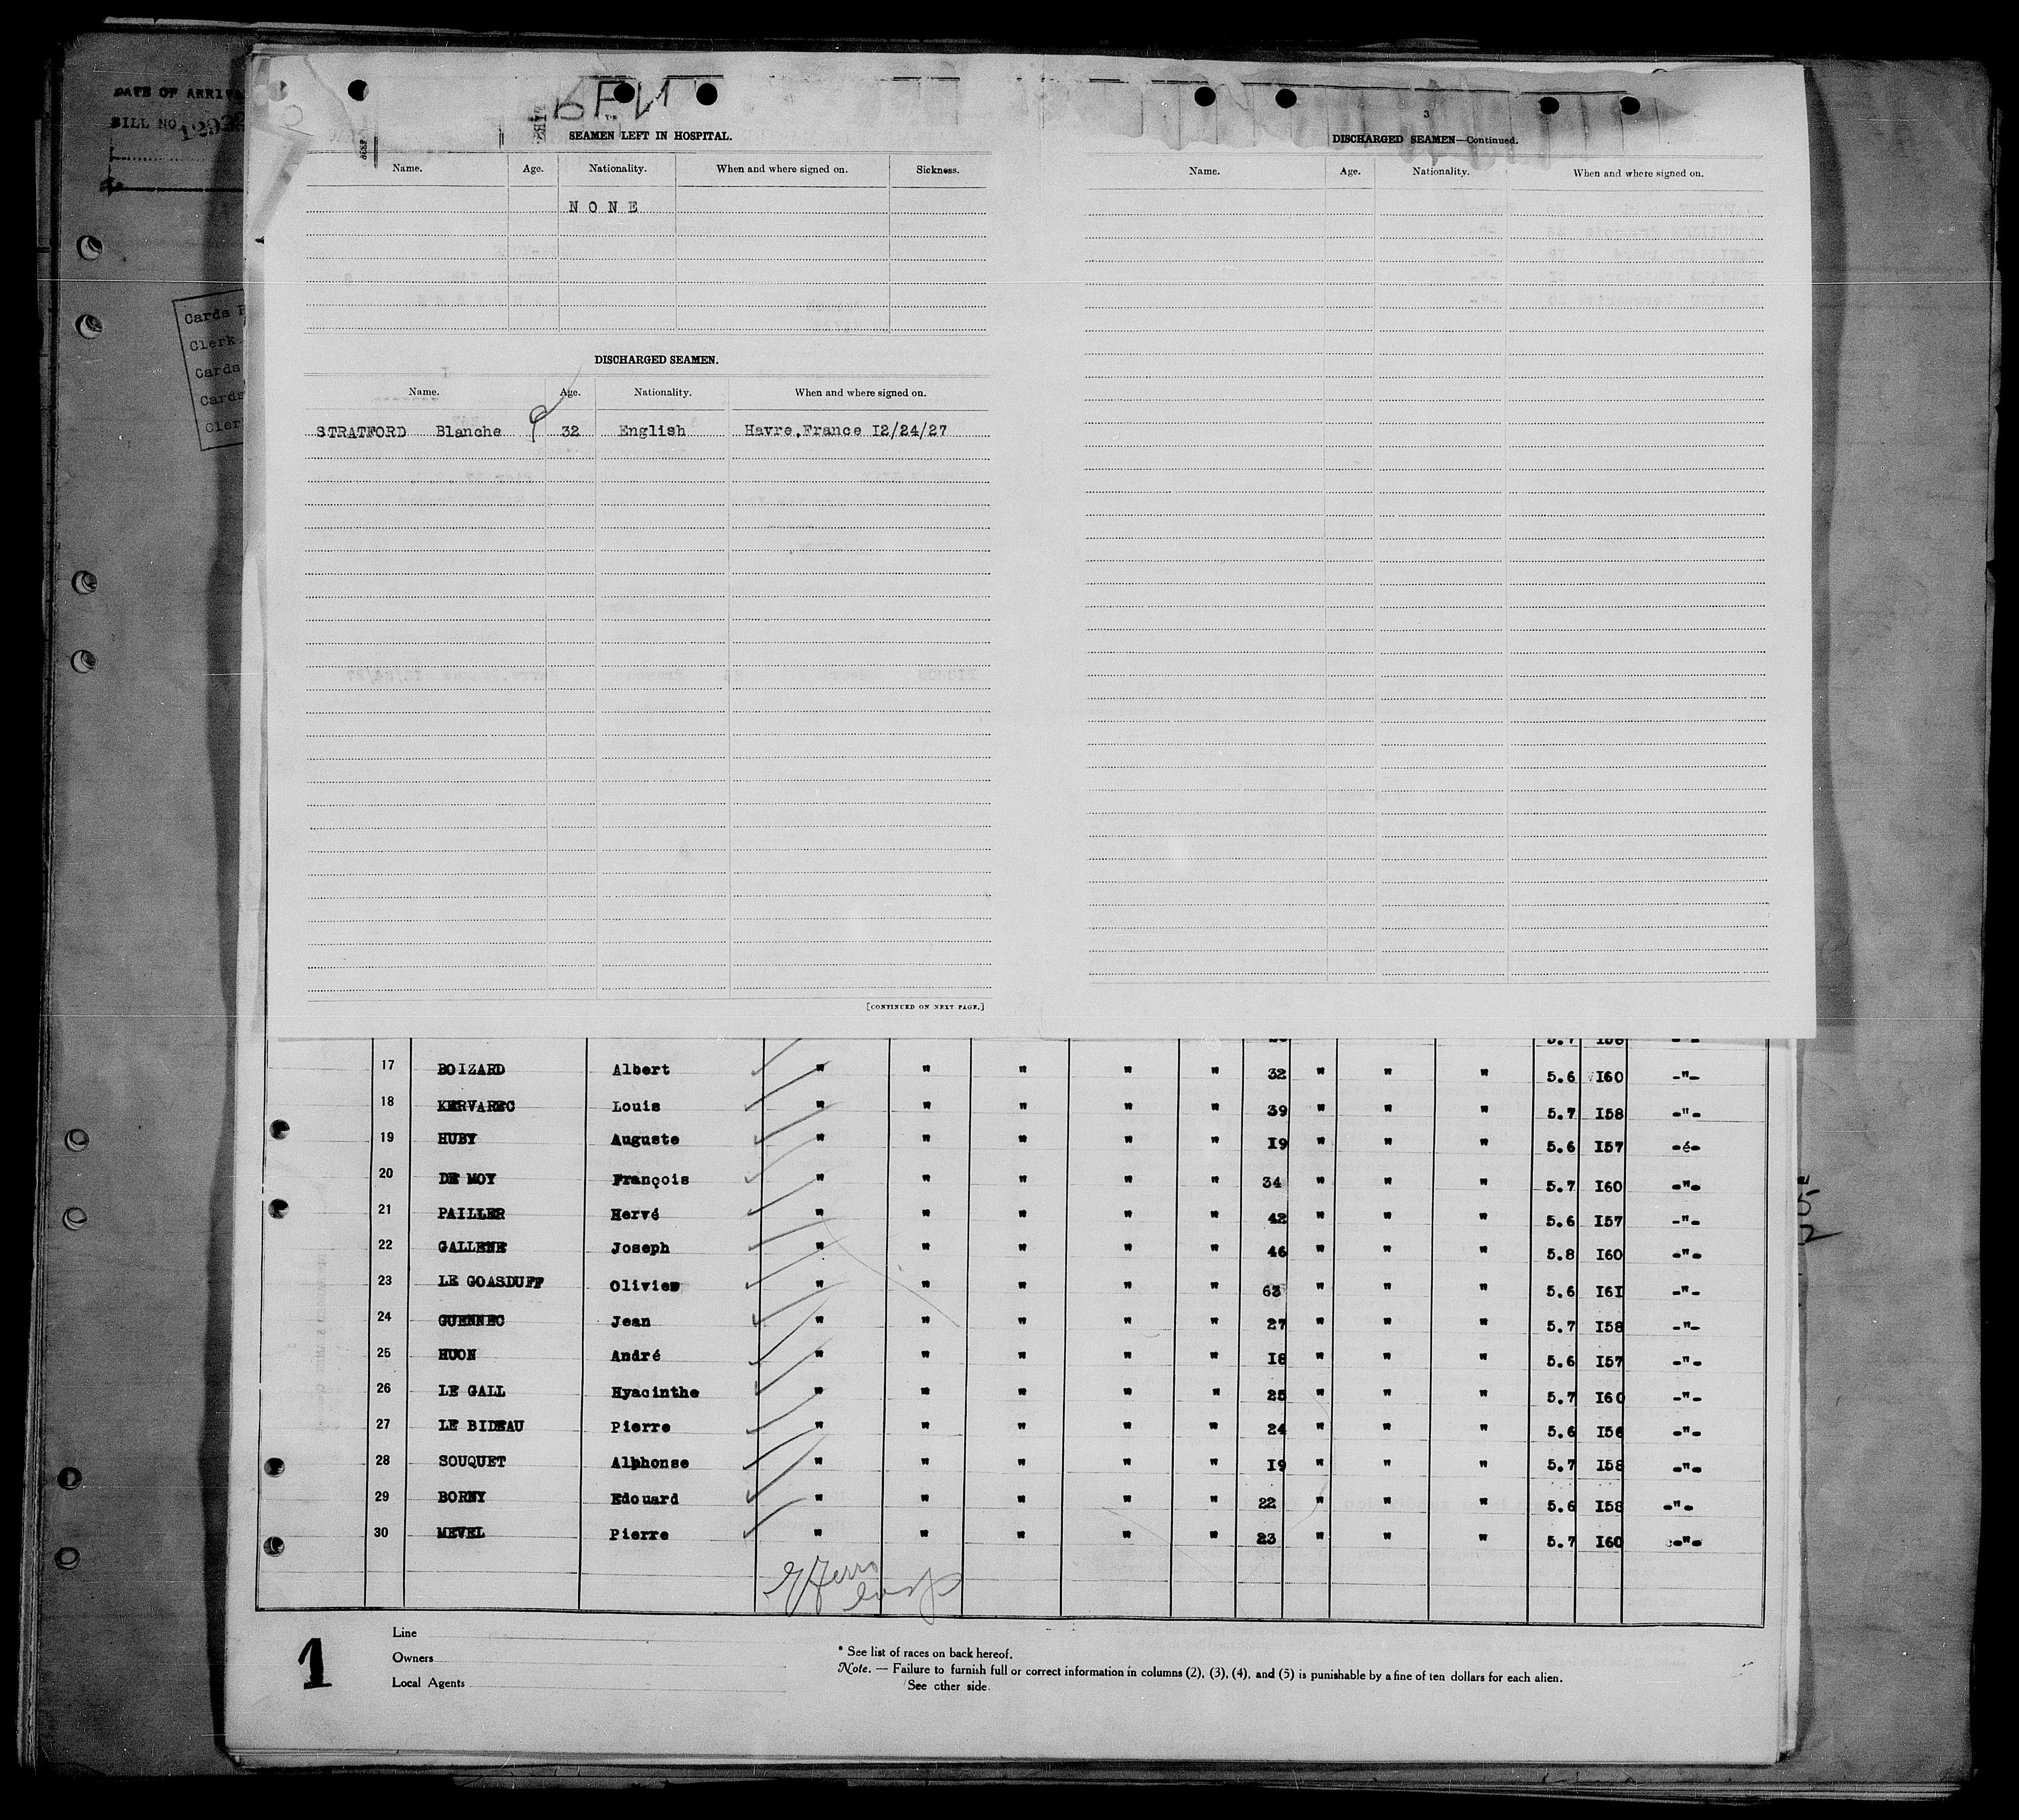 DATE OF ARRIVA
BILL NO.
Cards
Clerk
Cards
Cards
Cler
SEAMEN LEFT IN HOSPITAL.
Name. Age. Nationality. When and where signed on. Sickness.
N O N E
DISCHARGED SEAMEN.
Name. Age. Nationality. When and where signed on.
STRATFORD Blanche 32 English Havre,France I2/24/27
[CONTINUED ON NEXT PAGE.]
3
DISCHARGED SEAMEN—Continued.
Name. Age. Nationality. When and where signed on.
5.7 I58 -"-
17 BOIZARD Albert " " " " " 32 " " " 5.6 I60 -"-
18 KERVAREC Louis " " " " " 39 " " " 5.7 I58 -"-
19 HUBY Auguste " " " " " I9 " " " 5.6 I57 -é-
20 DE MOY François " " " " " 34 " " " 5.7 I60 -"-
21 PAILLER Hervé " " " " " 42 " " " 5.6 I57 -"-
22 GALLENE Joseph " " " " " 46 " " " 5.8 I60 -"-
23 LE GOASDUFF Olivier " " " " " 63 " " " 5.6 I6I -"-
24 GUENNEC Jean " " " " " 27 " " " 5.7 I58 -"-
25 HUON André " " " " " I8 " " " 5.6 I57 -"-
26 LE GALL Hyacinthe " " " " " 25 " " " 5.7 I60 -"-
27 LE BIDEAU Pierre " " " " " 24 " " " 5.6 I56 -"-
28 SOUQUET Alphonse " " " " " I9 " " " 5.7 I58 -"-
29 BORNY Edouard " " " " " 22 " " " 5.6 I58 -"-
30 MEVEL Pierre " " " " " 23 " " " 5.7 I60 -"-
1
Line
Owners
Local Agents
* See list of races on back hereof.
Note. — Failure to furnish full or correct information in columns (2), (3), (4), and (5) is punishable by a fine of ten dollars for each alien.
See other side.